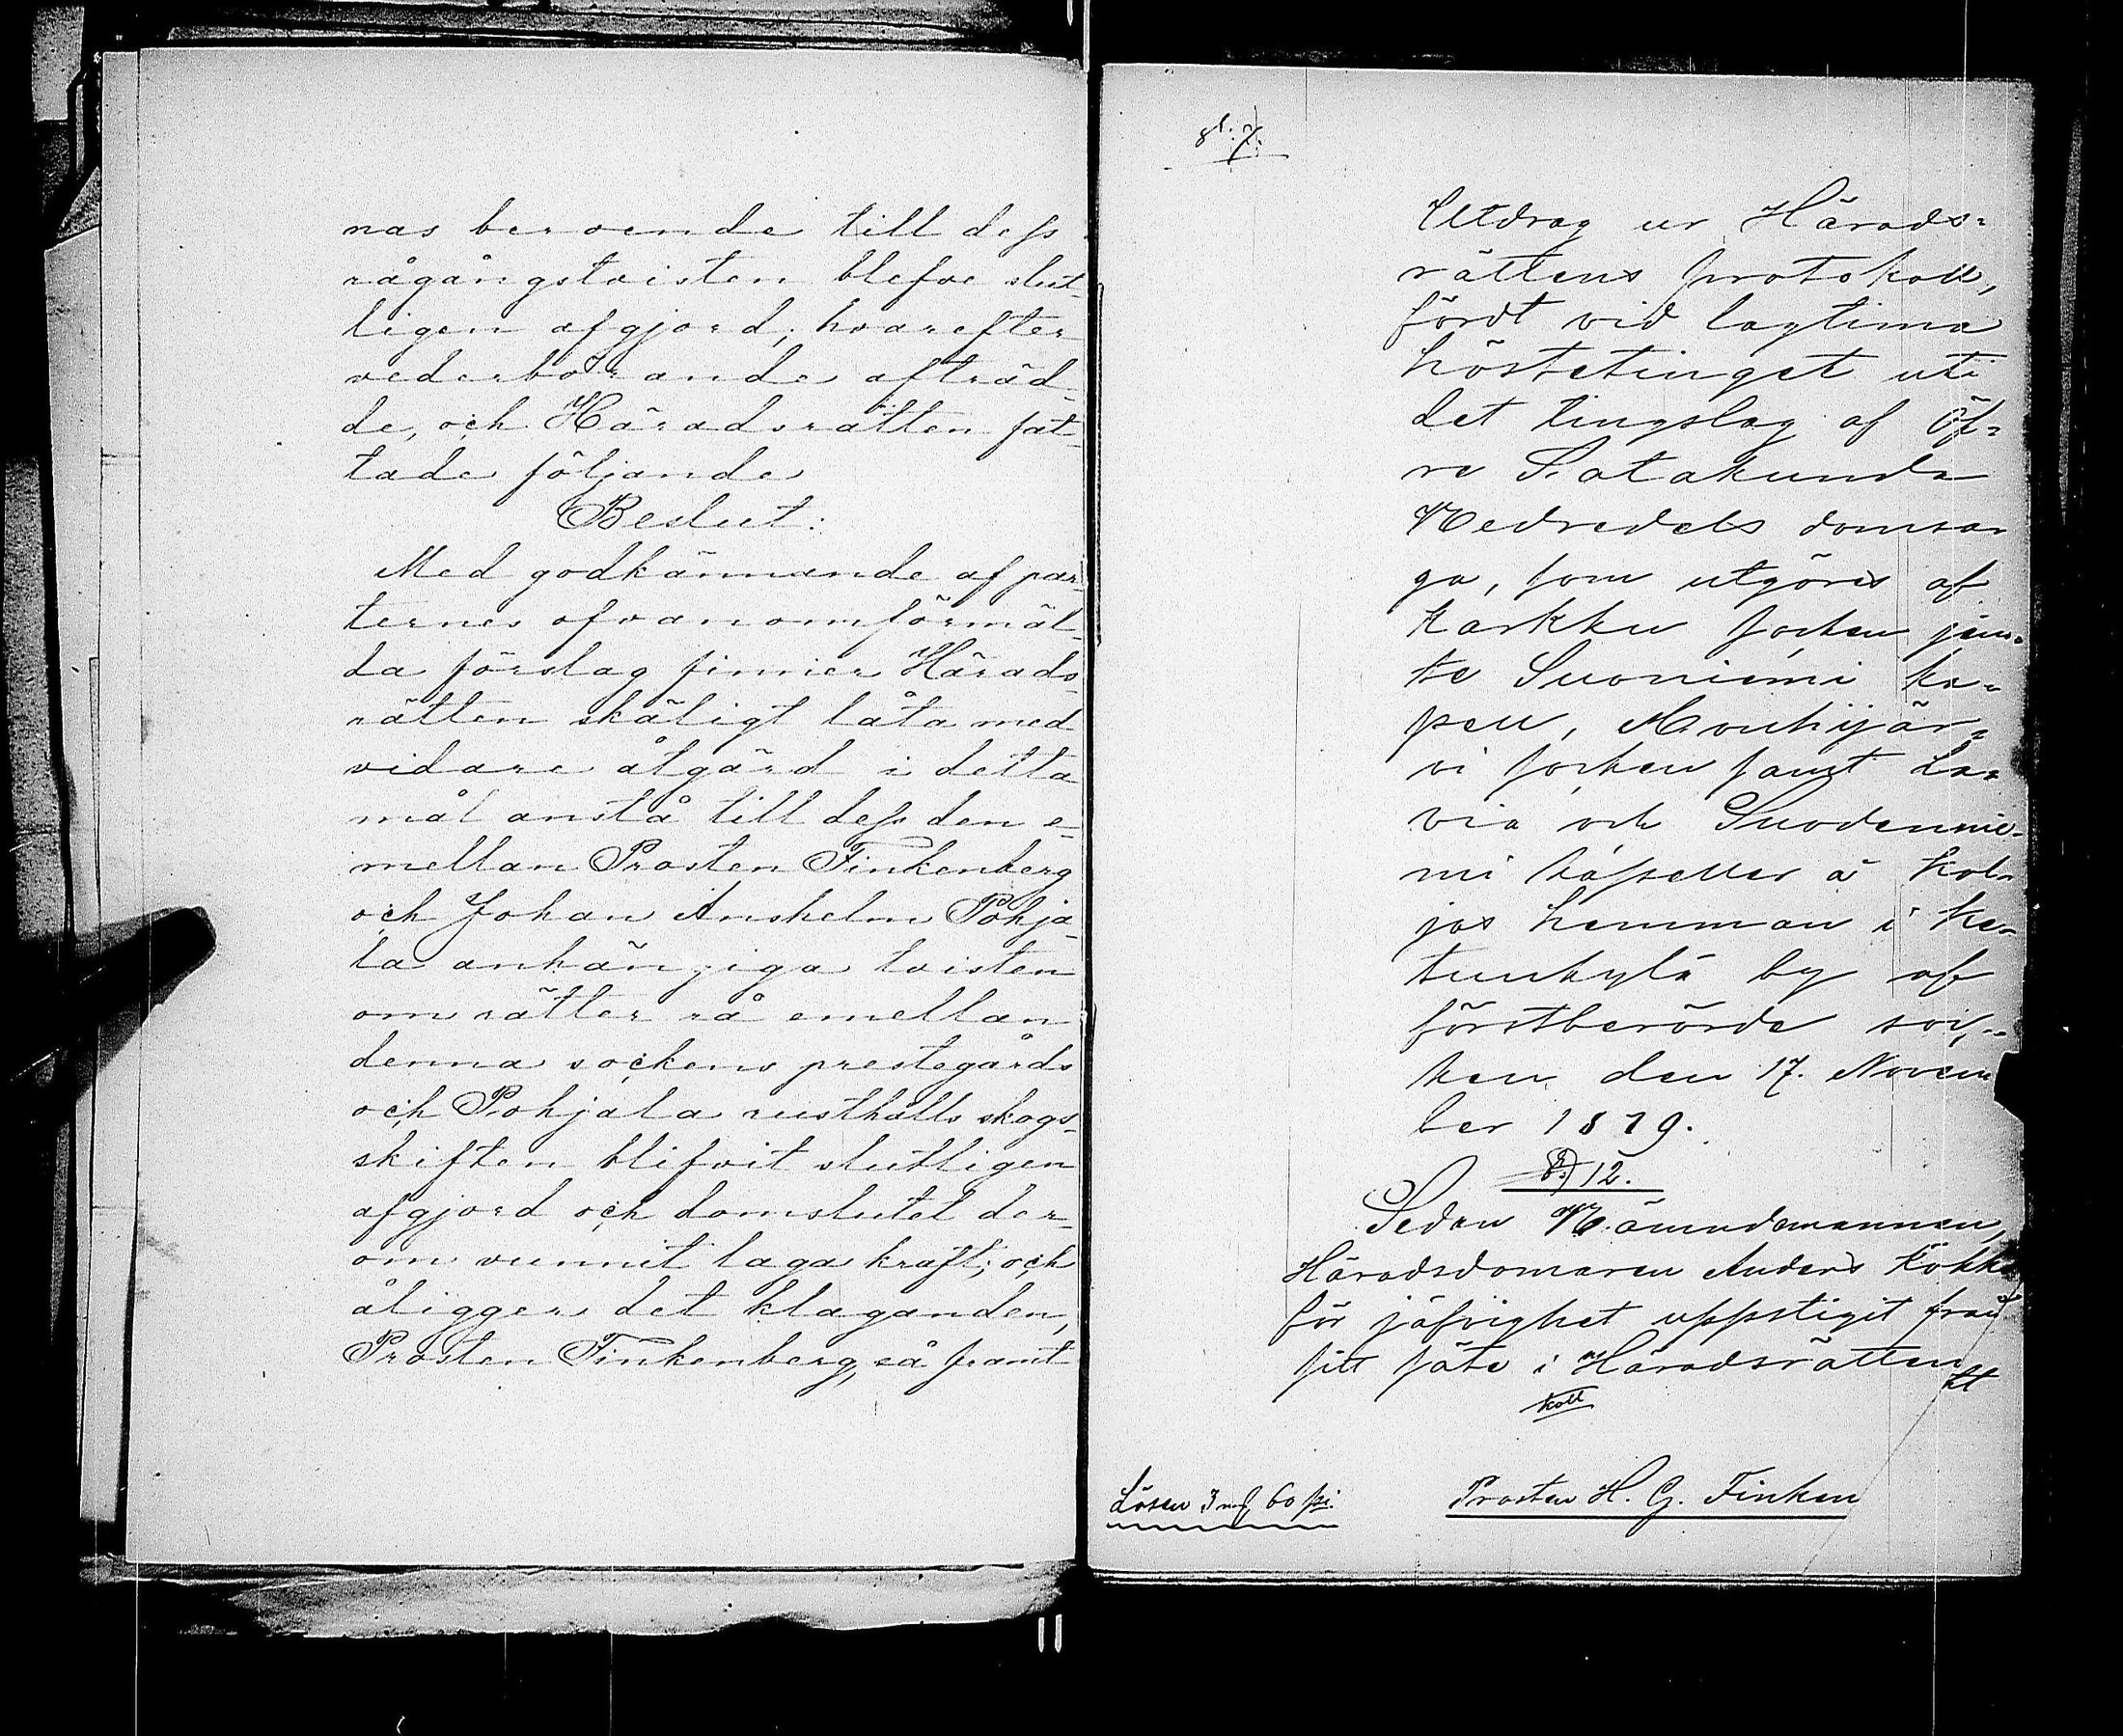 nas beroende till dess
rågångstvisten blefve slut-
ligen afgjord; hvarefter
vederbörande afträd-
de, och Häradsrätten fat-
tade följande
Beslut:
Med godkännande af par-
ternes ofvanomförmäl-
da förslag finner Härads-
rätten skäligt låta med
vidare åtgärd i detta
mål anstå till dess den e-
mellan Prosten Finkenberg
och Johan Anshelm Pohja-
la anhängiga tvisten
om rätter rå emellan
denna sockens prestegårds
och Pohjala rusthålls skogs-
skiften blifvit slutligen
afgjord och domslutet der-
om vunnit laga kraft; och
åligger det klaganden,
Prosten Finkenberg, så framt
Utdrag ur Härads-
rättens protokoll,
fördt vid lagtima
höstetinget uti
det tingslag af Öf-
re Satakunda
Nedredels domsa-
ga, som utgöres af
Karkku socken jem-
te Suoniemi ka-
pell, Mouhijär-
vi socken samt La-
via och Suodennie-
mi kapeller å Kol-
jos hemman i Ke-
tunkylä by af
förstberörde soc-
ken den 17. Novem
ber 1879.
§ 12.
Sedan Nämndemannen,
Häradsdomaren Anders Kokko
för jäfvighet uppstigit från
sitt säte i Häradsrätten
Koll
Lösen 3 mf 60 pi.
Prosten H. G. Finken